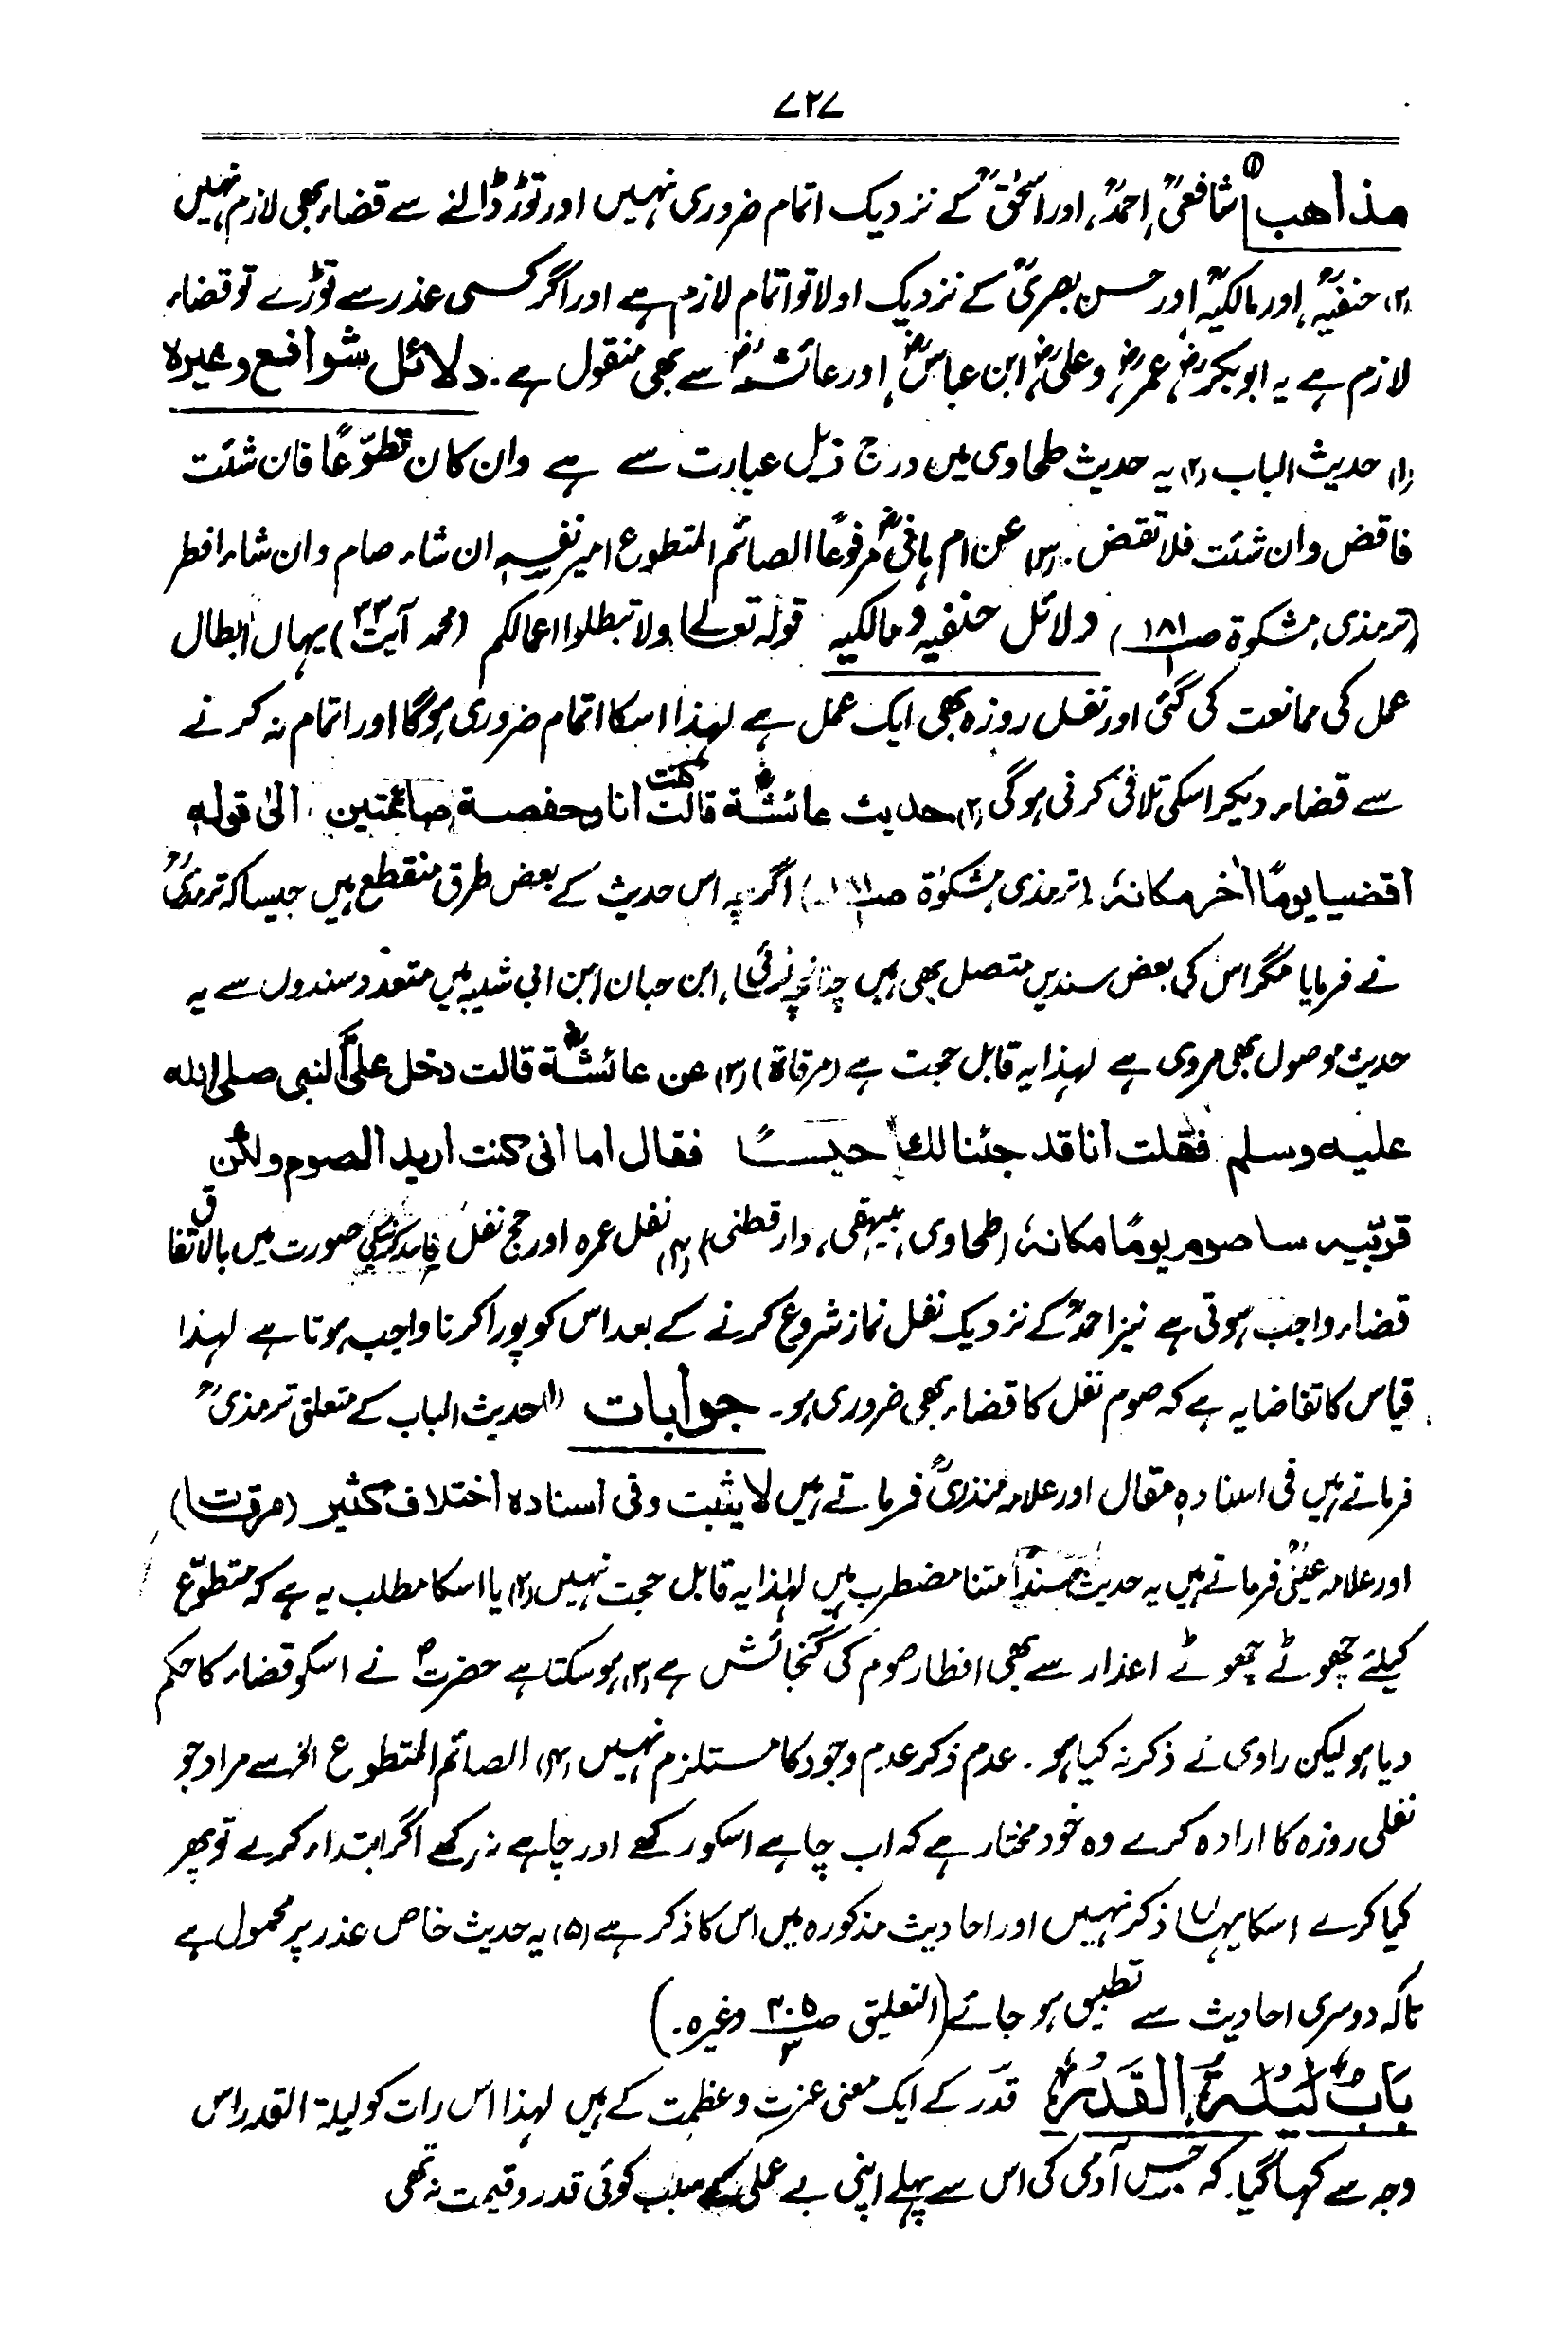 ۷۲۷
مذاهب (۱) شافعیؒ، احمدؒ، اور اسحٰقؒ کے نزدیک اتمام ضروری نہیں اور توڑ ڈالنے سے قضاء بھی لازم نہیں
(۲) حنفیہؒ، اور مالکیہؒ، اور حسن بصریؒ کے نزدیک اولا تو اتمام لازم ہے اور اگر کسی عذر سے توڑے تو قضاء
لازم ہے یہ ابوبکرؓ، عمرؓ، وعلیؓ، ابن عباسؓ، اور عائشہؓ سے بھی منقول ہے. دلائل شوافع وغیرہ
(۱) حدیث الباب (۲) یہ حدیث طحاوی میں درج ذیل عبارت سے ہے وان کان تطوّعًا فان شئت
فاقض وان شئت فلا تقض. (۳) عن ام ہانیؓ مرفوعًا الصائم المتطوع امیر نفسہ ان شاء صام وان شاء افطر
(ترمذی، مشکوۃ صـ ۱۸۱/۱) دلائل حنفیہ و مالکیہ قولہ تعالیٰ ولا تبطلوا اعمالکم (محمد آیت ۳۳) یہاں ابطال
عمل کی ممانعت کی گئی اور نفل روزہ بھی ایک عمل ہے لہذا اسکا اتمام ضروری ہوگا اور اتمام نہ کرنے
سے قضاء دیکر اسکی تلافی کرنی ہوگی (۲) حدیث عائشةؓ قالت کنت انا وحفصة صائمتین الیٰ قولہ
اقضیا یومًا اٰخر مکانہٗ (ترمذی، مشکوٰۃ صـ ۱۸۱/۱) اگرچہ اس حدیث کے بعض طرق منقطع ہیں جیسا کہ ترمذیؒ
نے فرمایا مگر اس کی بعض سندیں متصل بھی ہیں چنانچہ نسائی، ابن حبان ابن ابی شیبہ میں متعدد سندوں سے یہ
حدیث موصول بھی مروی ہے لہذا یہ قابل حجت ہے (مرقاۃ) (۳) عن عائشةؓ قالت دخل علیَّ النبی صلی الله
علیه وسلم فقلت انا قد جئنا لك حیسًا فقال اما انی کنت ارید الصوم ولکن
قرّبیه ساصوم یومًا مکانہٗ (طحاوی، بیہقی، دارقطنی) (۴) نفل عمرہ اور حج نفل فاسد کرنیکی صورت میں بالاتفاق
قضاء واجب ہوتی ہے نیز احمدؒ کے نزدیک نفل نماز شروع کرنے کے بعد اس کو پورا کرنا واجب ہوتا ہے لہذا
قیاس کا تقاضا یہ ہے کہ صوم نفل کا قضاء بھی ضروری ہو۔ جوابات (۱) حدیث الباب کے متعلق ترمذیؒ
فرماتے ہیں فی اسنادہ مقال اور علامہ منذریؒ فرماتے ہیں لا یثبت وفی اسناده اختلاف کثیر (مرقات)
اور علامہ عینیؒ فرماتے ہیں یہ حدیث سنداً متنا مضطرب ہیں لہٰذا یہ قابل حجت نہیں (۲) یا اسکا مطلب یہ ہے کہ متطوّع
کیلئے چھوٹے چھوٹے اعذار سے بھی افطار صوم کی گنجائش ہے (۳) ہو سکتا ہے حضرتؐ نے اسکو قضاء کا حکم
دیا ہو لیکن راوی نے ذکر نہ کیا ہو. عدم ذکر عدم وجود کا مستلزم نہیں (۴) الصائم المتطوع الخ سے مراد جو
نفلی روزہ کا ارادہ کرے وہ خود مختار ہے کہ اب چاہے اسکو رکھے اور چاہے نہ رکھے اگر ابتداء کرے تو پھر
کیا کرے اسکا یہاں ذکر نہیں اور احادیث مذکورہ میں اس کا ذکر ہے (۵) یہ حدیث خاص عذر پر محمول ہے
تاکہ دوسری احادیث سے تطبیق ہو جائے (التعلیق صـ ۲۰۵/۲ وغیرہ.)
بَابُ لَيْلَةِ الْقَدْرِ قدر کے ایک معنی عزت وعظمت کے ہیں لہذا اس رات کو لیلۃ القدر اس
وجہ سے کہا گیا. کہ جس آدمی کی اس سے پہلے اپنی بے عملی کے سبب کوئی قدر و قیمت نہ تھی